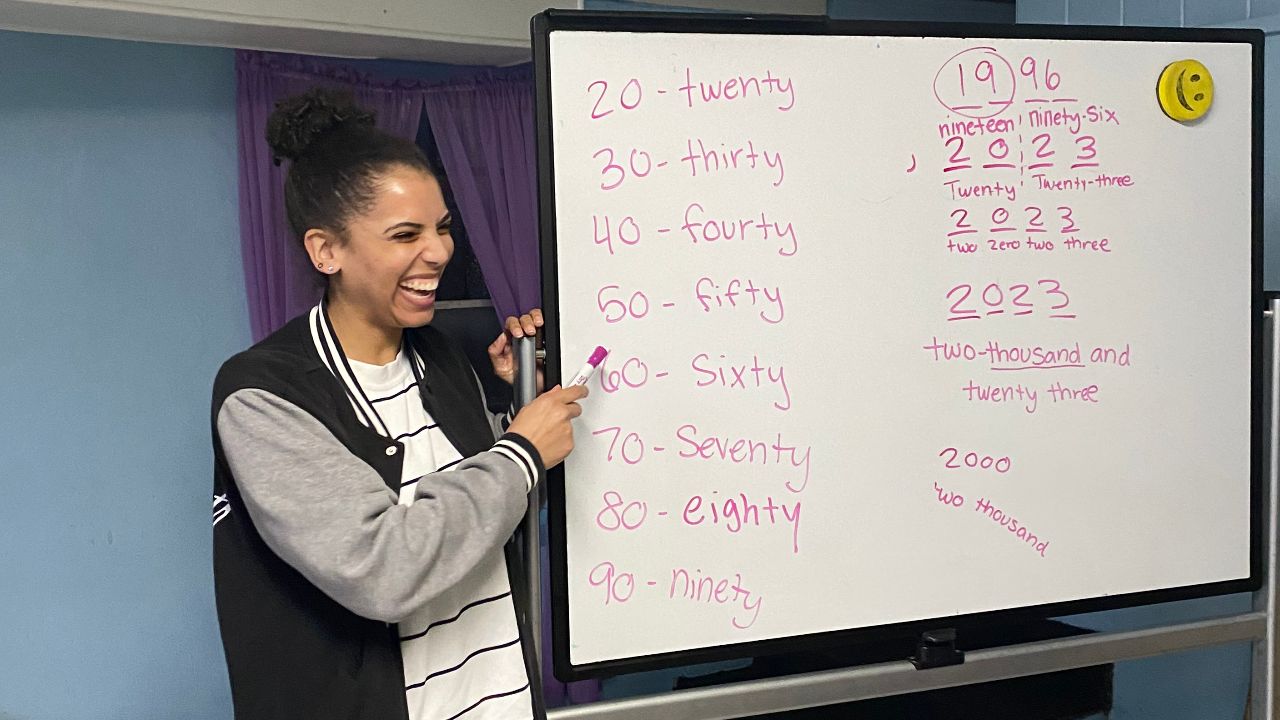 20 - twenty
30 - thirty
40 - fourty
50 - fifty
60 - Sixty
70 - Seventy
80 - eighty
90 - ninety
19 96
nineteen ninety-six
20 23
Twenty Twenty-three
2 0 2 3
two zero two three
2023
two-thousand and
twenty three
2000
wo thousand